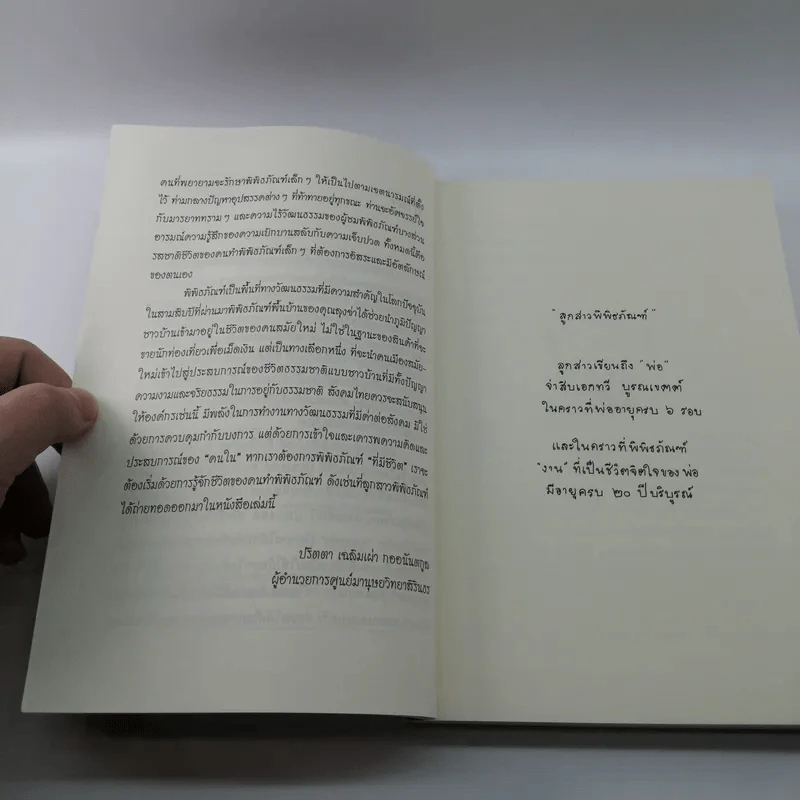 คนที่พยายามจะรักษาพิพิธภัณฑ์เล็กๆ ให้เป็นไปตามเจตนารมณ์ที่ตั้ง
ไว้ ท่ามกลางปัญหาอุปสรรคต่างๆ ที่ท้าทายอยู่ทุกขณะ ท่านจะอัศจรรย์ใจ
กับมารยาททรามๆ และความไร้วัฒนธรรมของผู้ชมพิพิธภัณฑ์บางส่วน
อารมณ์ความรู้สึกของความเบิกบานสลับกับความเจ็บปวด ทั้งหมดนี้คือ
รสชาติชีวิตของคนทำพิพิธภัณฑ์เล็กๆ ที่ต้องการอิสระและมีอัตลักษณ์
ของตนเอง
พิพิธภัณฑ์เป็นพื้นที่ทางวัฒนธรรมที่มีความสำคัญในโลกปัจจุบัน
ในสามสิบปีที่ผ่านมาพิพิธภัณฑ์พื้นบ้านของคุณลุงจ่าได้ช่วยนำภูมิปัญญา
ชาวบ้านเข้ามาอยู่ในชีวิตของคนสมัยใหม่ ไม่ใช่ในฐานะของสินค้าที่จะ
ขายนักท่องเที่ยวเพื่อเม็ดเงิน แต่เป็นทางเลือกหนึ่ง ที่จะนำคนเมืองสมัย-
ใหม่เข้าไปสู่ประสบการณ์ของชีวิตธรรมชาติแบบชาวบ้านที่มีทั้งปัญญา
ความงามและจริยธรรมในการอยู่กับธรรมชาติ สังคมไทยควรจะสนับสนุน
ให้องค์กรเช่นนี้ มีพลังในการทำงานทางวัฒนธรรมที่มีค่าต่อสังคม มิใช่
ด้วยการควบคุมกำกับบงการ แต่ด้วยการเข้าใจและเคารพความคิดและ
ประสบการณ์ของ "คนใน" หากเราต้องการพิพิธภัณฑ์ "ที่มีชีวิต" เราจะ
ต้องเริ่มด้วยการรู้จักชีวิตของคนทำพิพิธภัณฑ์ ดังเช่นที่ลูกสาวพิพิธภัณฑ์
ได้ถ่ายทอดออกมาในหนังสือเล่มนี้
ปริตตา เฉลิมเผ่า กออนันตกูล
ผู้อำนวยการศูนย์มานุษยวิทยาสิรินธร
"ลูกสาวพิพิธภัณฑ์"
ลูกสาวเขียนถึง "พ่อ"
จ่าสิบเอกทวี บูรณเขตต์
ในคราวที่พ่ออายุครบ ๖ รอบ
และในคราวที่พิพิธภัณฑ์
"งาน" ที่เป็นชีวิตจิตใจของพ่อ
มีอายุครบ ๒๐ ปีบริบูรณ์